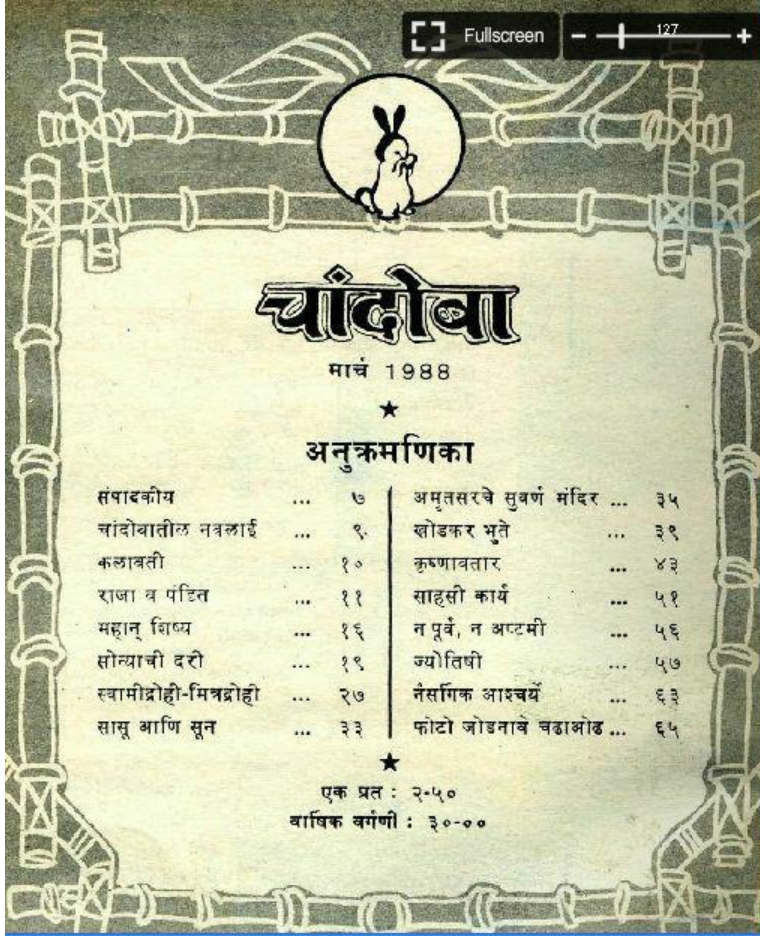 Fullscreen
127
चांदोबा
मार्च 1988
अनुक्रमणिका
संपादकीय ... ७
चांदोबातील नवलाई ... ९
कलावती ... १०
राजा व पंडित ... ११
महान् शिष्य ... १६
सोन्याची दरी ... १९
स्वामीद्रोही-मित्रद्रोही ... २७
सासू आणि सून ... ३३
अमृतसरचे सुवर्ण मंदिर ... ३५
खोडकर भुते ... ३९
कृष्णावतार ... ४३
साहसी कार्य ... ५१
न पूर्व, न अष्टमी ... ५६
ज्योतिषी ... ५७
नैसर्गिक आश्चर्ये ... ६३
फोटो जोडनावे चढाओढ ... ६५
एक प्रत : २-५०
वार्षिक वर्गणी : ३०-००